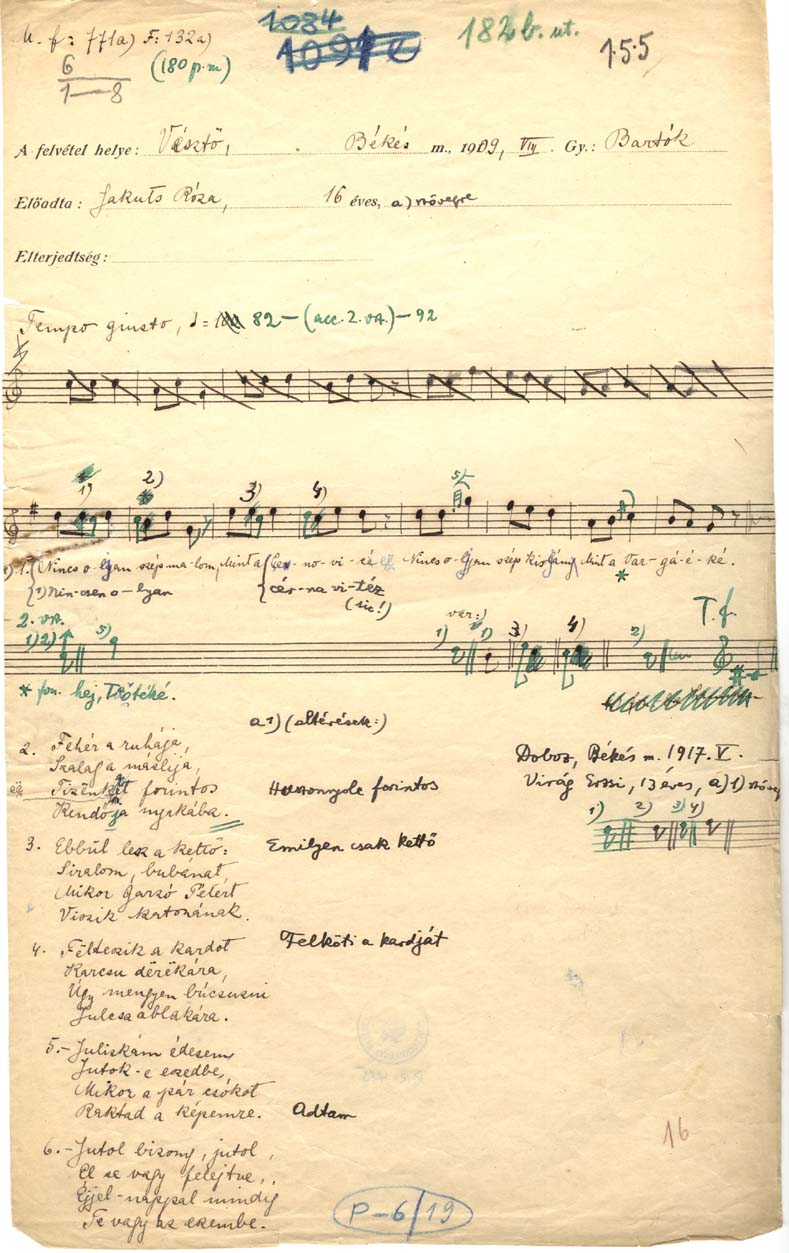 M. f: 771a) F: 132a)
1084
1091c
182 b. ut.
155
6
1—8
(180 p.m)
A felvétel helye: Vésztő, Békés m., 1909, VIII. Gy.: Bartók
Előadta: Jakuts Róza, 16 éves, a) szövegre
Elterjedtség:
Tempo giusto, = 82 — (acc. 2. va.) — 92
1) 2) 3) 4) 5)
1. Nincs o-lyan szép ma-lom, Mint a Cser-no-vi-cé Nincs o-lyan szép kis lány, Mint a Var-gá-é-ké.
1) Nin-csen o-lyan cér-na vi-téz
(sic!)
2. va.
1) 2) 5)
var:)
1) 1) 3) 4) 2)
T. f.
* fon. hej, Tőtéké.
a1) (eltérések:)
2. Fehér a ruhája,
Szalag a máslija,
Tizënkét forintos Huszonnyolc forintos
Kendő a nyakába.
Doboz, Békés m. 1917. V.
Virág Erzsi, 13 éves, a) 1)
1) 2) 3) 4)
3. Ebbül lesz a kettő: Emilyen csak kettő
Siralom, bubánat,
Mikor Garzó Pétërt
Viszik katonának.
4. Félteszik a kardot Felköti a kardját
Karcsu dërëkára,
Úgy mengyen búcsuzni
Julcsa ablakára.
5.- Juliskám édesem
Jutok-e eszedbe,
Mikor a pár csókot
Raktad a képemre. Adtam
6.- Jutol bizony, jutol,
El se vagy felejtve,
Éjjel-nappal mindig
Te vagy az eszembe.
16
P-6/19